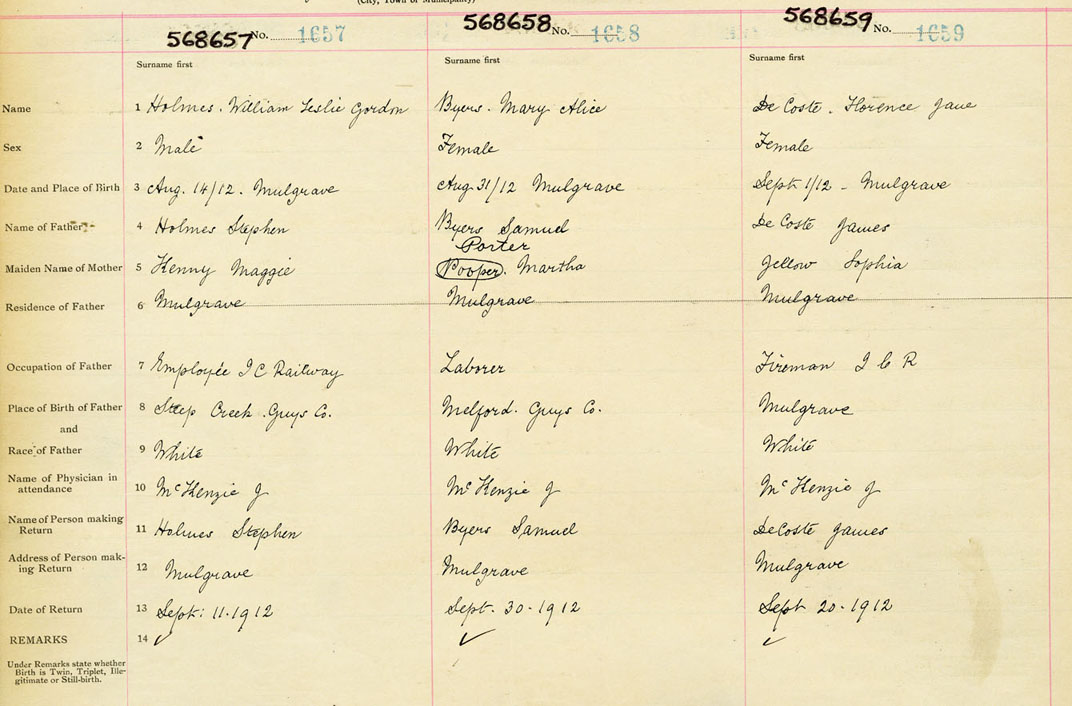 (City, Town or Municipality)
568657 No. 1657 568658 No. 1658 568659 No. 1659
Surname first Surname first Surname first
Name 1 Holmes. William Leslie Gordon Byers. Mary Alice De Coste. Florence Jane
Sex 2 Male Female Female
Date and Place of Birth 3 Aug. 14/12. Mulgrave Aug 31/12 Mulgrave Sept 1/12 - Mulgrave
Name of Father 4 Holmes Stephen Byers Samuel De Coste James
Porter
Maiden Name of Mother 5 Kenny Maggie Pooper. Martha Jellow Sophia
Residence of Father 6 Mulgrave Mulgrave Mulgrave
Occupation of Father 7 Employée I C Railway Laborer Fireman I C R
Place of Birth of Father 8 Steep Creek. Guys Co. Melford. Guys Co. Mulgrave
and
Race of Father 9 White White White
Name of Physician in
attendance 10 McKenzie J McKenzie J McKenzie J
Name of Person making
Return 11 Holmes Stephen Byers Samuel DeCoste James
Address of Person mak-
ing Return 12 Mulgrave Mulgrave Mulgrave
Date of Return 13 Sept: 11-1912 Sept. 30-1912 Sept 20-1912
REMARKS 14 ✓ ✓ ✓
Under Remarks state whether
Birth is Twin, Triplet, Ille-
gitimate or Still-birth.